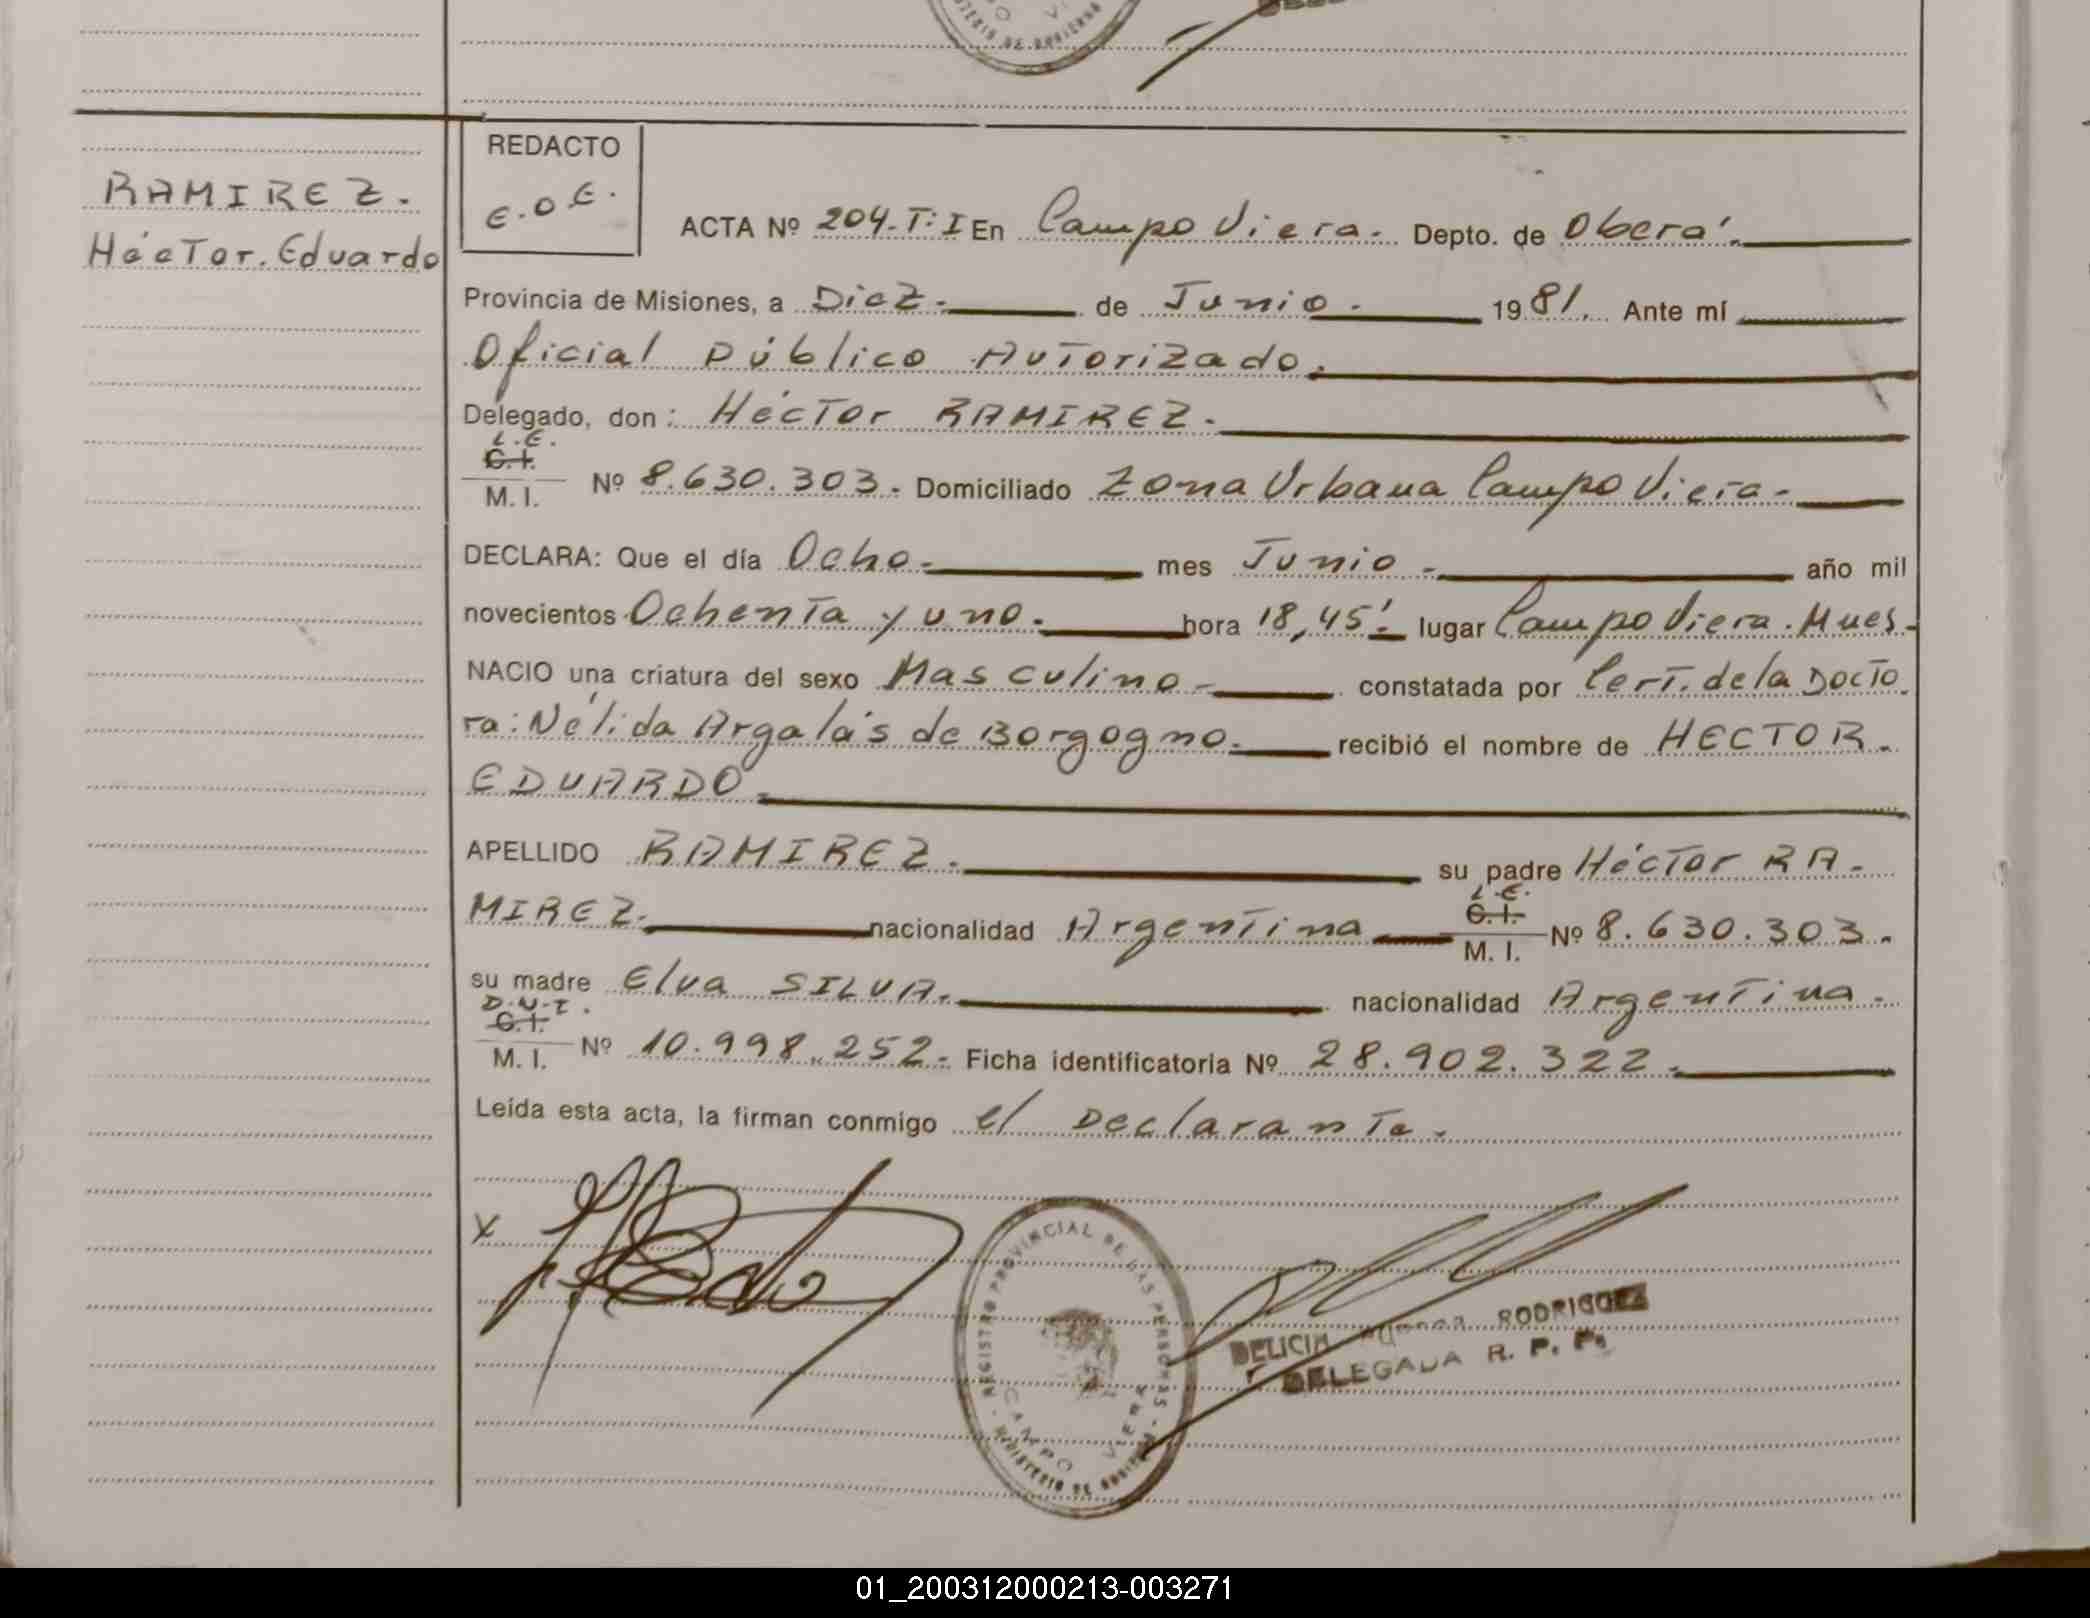 RAMIREZ.
Héctor. Eduardo
REDACTO
E.O.E.
ACTA Nº 204.T:I En Campo Viera. Depto. de Oberá.
Provincia de Misiones, a Diez. de Junio. 1981. Ante mí
Oficial Público Autorizado.
Delegado, don: Héctor RAMIREZ.
L.E.
C.I.
M. I. Nº 8.630.303. Domiciliado Zona Urbana Campo Viera.
DECLARA: Que el día Ocho. mes Junio. año mil
novecientos Ochenta y uno. hora 18,45'. lugar Campo Viera. Mnes.
NACIO una criatura del sexo Masculino. constatada por Cert. de la Docto
ra: Nélida Argalás de Borgogno. recibió el nombre de HECTOR.
EDUARDO.
APELLIDO RAMIREZ. su padre Héctor RA-
L.E.
C.I.
MIREZ. nacionalidad Argentina M. I. Nº 8.630.303.
su madre Elva SILVA. nacionalidad Argentina.
D.U.I.
C.I.
M. I. Nº 10.998.252. Ficha identificatoria Nº 28.902.322.
Leída esta acta, la firman conmigo el Declarante.
X
REGISTRO PROVINCIAL DE LAS PERSONAS - MINISTERIO DE GOBIERNO -
CAMPO VIERA
DELICIA RODRIGUEZ
DELEGADA R. P. P.
01_200312000213-003271